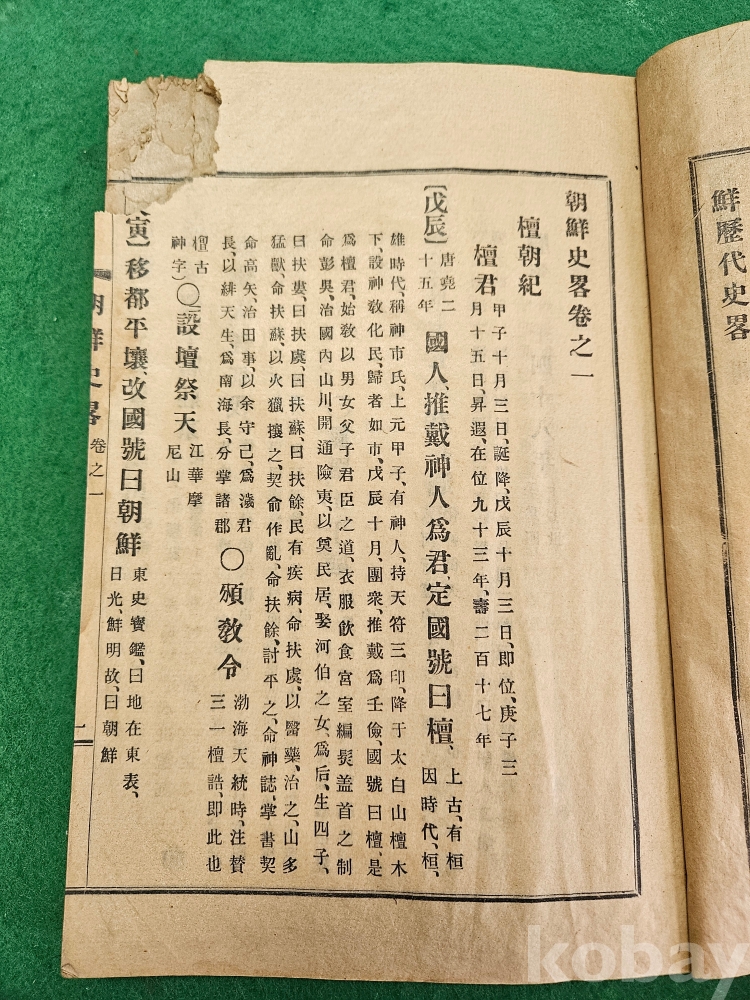 鮮歷代史畧
朝鮮史畧卷之一
檀朝紀
檀君
甲子十月三日、誕降、戊辰十月三日、即位、庚子三
月十五日、昇遐、在位九十三年、壽二百十七年
【戊辰】
唐堯二
十五年
國人、推戴神人爲君、定國號曰檀、
上古、有桓
因時代、桓、
雄時代、稱神市氏、上元甲子、有神人、持天符三印、降于太白山檀木
下、設神敎化民、歸者如市、戊辰十月、團衆、推戴爲壬儉、國號曰檀、是
爲檀君、始敎以男女父子君臣之道、衣服飮食宮室編髮盖首之制
命彭吳、治國內山川、開通險夷、以奠民居、娶河伯之女、爲后、生四子、
曰扶婁、曰扶虞、曰扶蘇、曰扶餘、民有疾病、命扶虞、以醫藥、治之、山多
猛獸、命扶蘇、以火獵攘之、契俞作亂、命扶餘、討平之、命神誌、掌書契
命高矢、治田事、以余守己、爲濊君
長、以緋天生、爲南海長、分掌諸郡
〇頒敎令
渤海天統時、注賛
三一檀誥、即此也
檀古
神字
〇設壇祭天
江華摩
尼山
寅】移都平壤、改國號曰朝鮮
東史寶鑑、曰地在東表、
日光、鮮明故、曰朝鮮
朝鮮史畧
卷之一
一
kobay